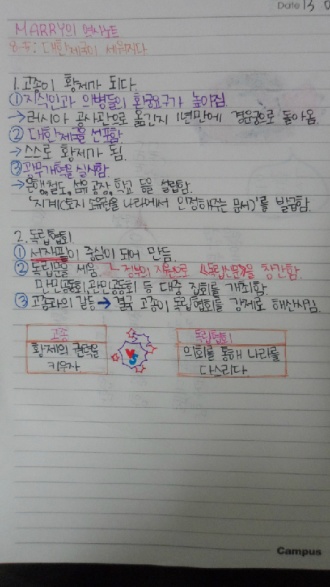 Date 13
MARRY의 역사노트
주제: 대한제국이 세워지다
1. 고종이 황제가 되다.
① 지식인과 의병들의 환궁요구가 높아짐.
→ 러시아 공사관으로 옮긴지 1년만에 경운궁으로 돌아옴.
② 대한제국을 선포함
→ 스스로 황제가 됨.
③ 광무개혁을 실시함
→ 은행, 철도, 섬유 공장, 학교 등을 설립함.
'지계(토지 소유권을 나라에서 인정해주는 문서)'를 발급함.
2. 독립협회
① 서재필이 중심이 되어 만듦.
② 독립문을 세움 정부의 지원으로 <독립신문>을 창간함
만민공동회, 관민공동회 등 대중 집회를 개최함
③ 고종과의 갈등 → 결국 고종이 독립협회를 강제로 해산시킴.
고종 VS 독립협회
황제의 권력을 의회를 통해 나라를
키우자 다스리다
Campus